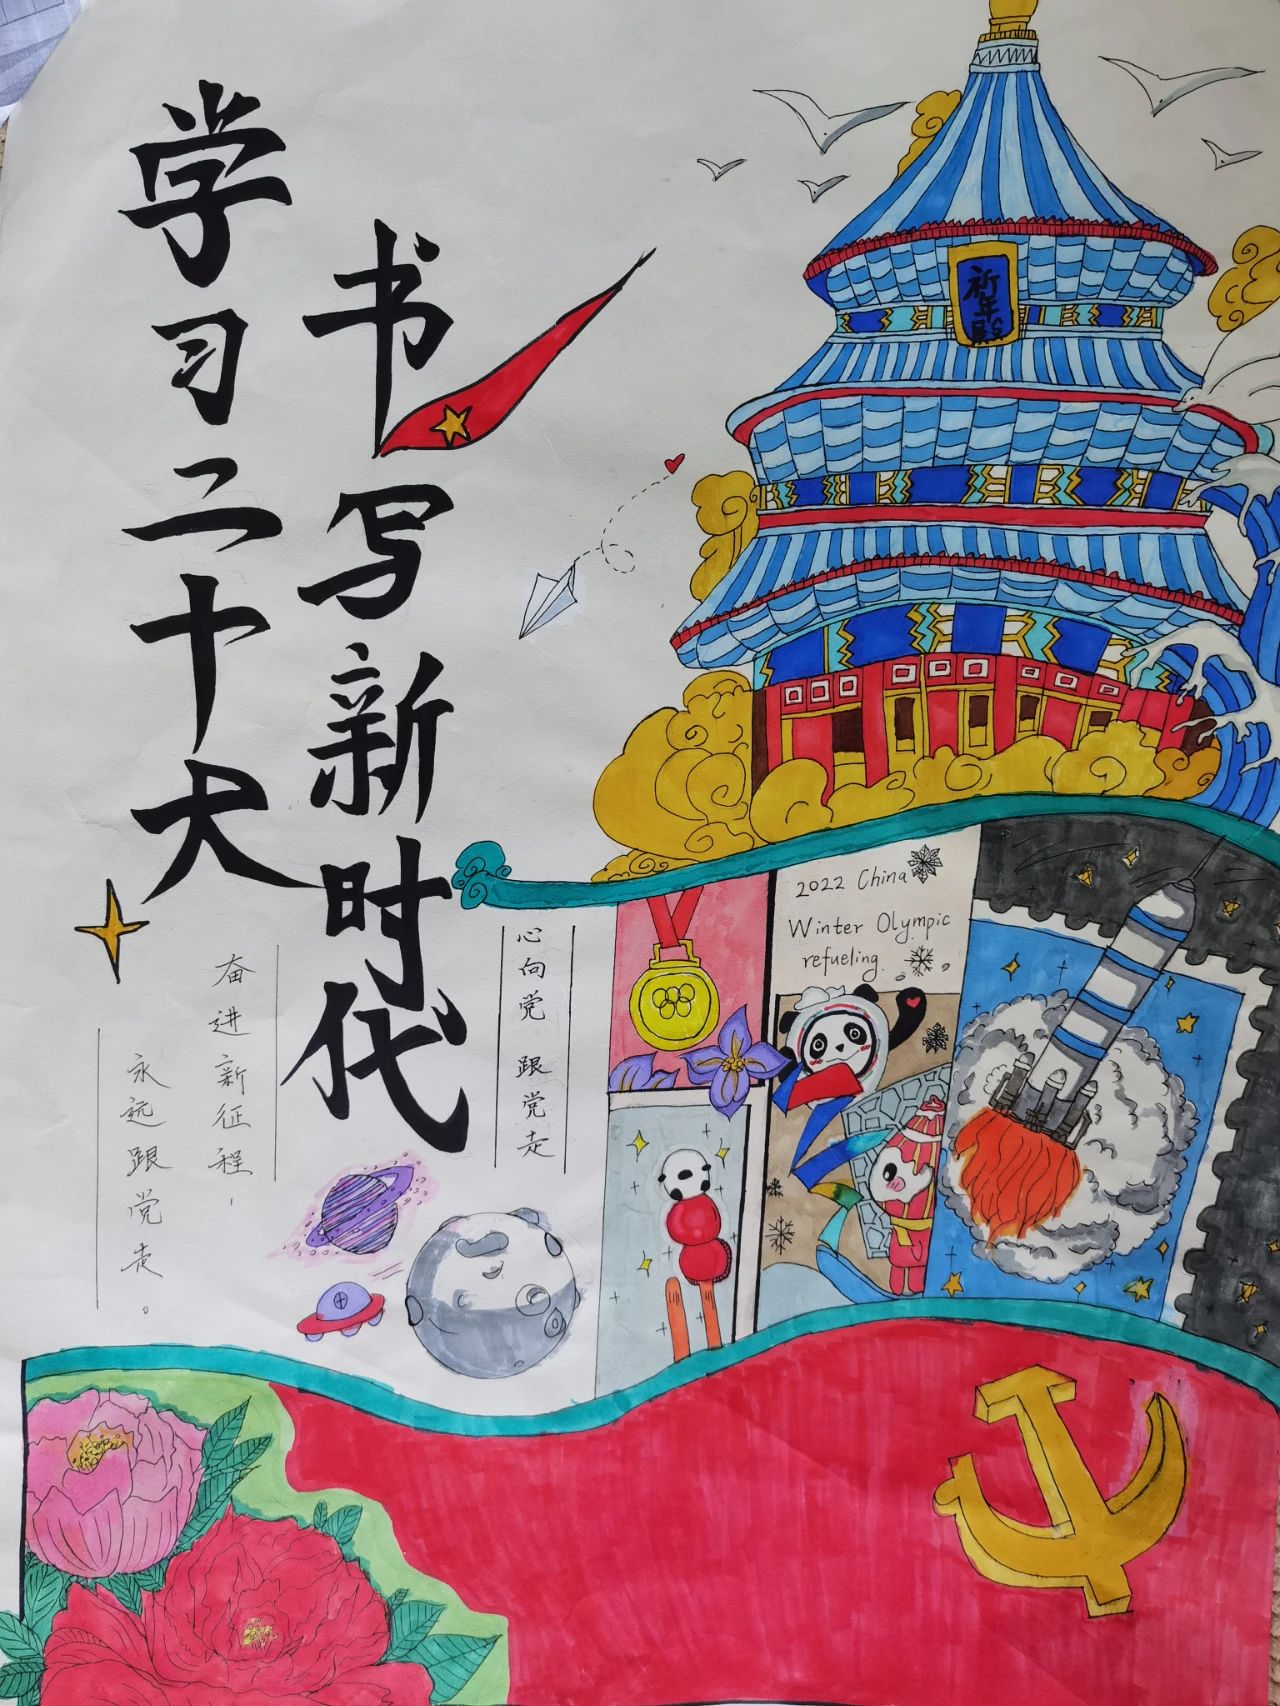 学习二十大
书写新时代
祈年殿
2022 China
Winter Olympic
refueling.
心向党 跟党走
奋进新征程，
永远跟党走。